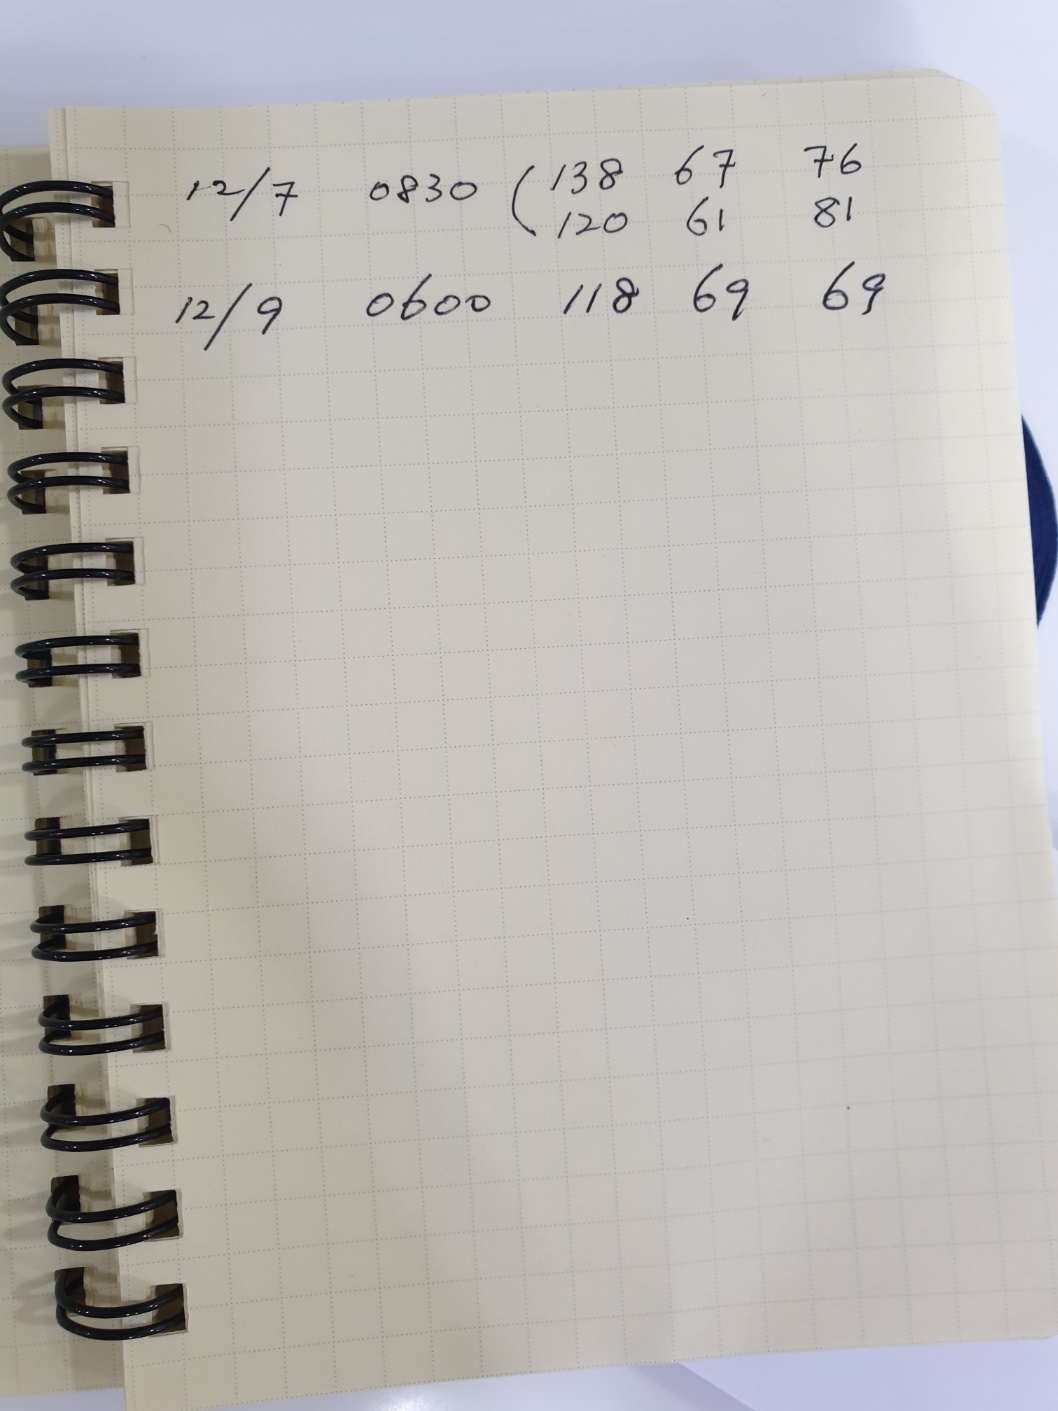 12/7 0830 ( 138 67 76
120 61 81
12/9 0600 118 69 69